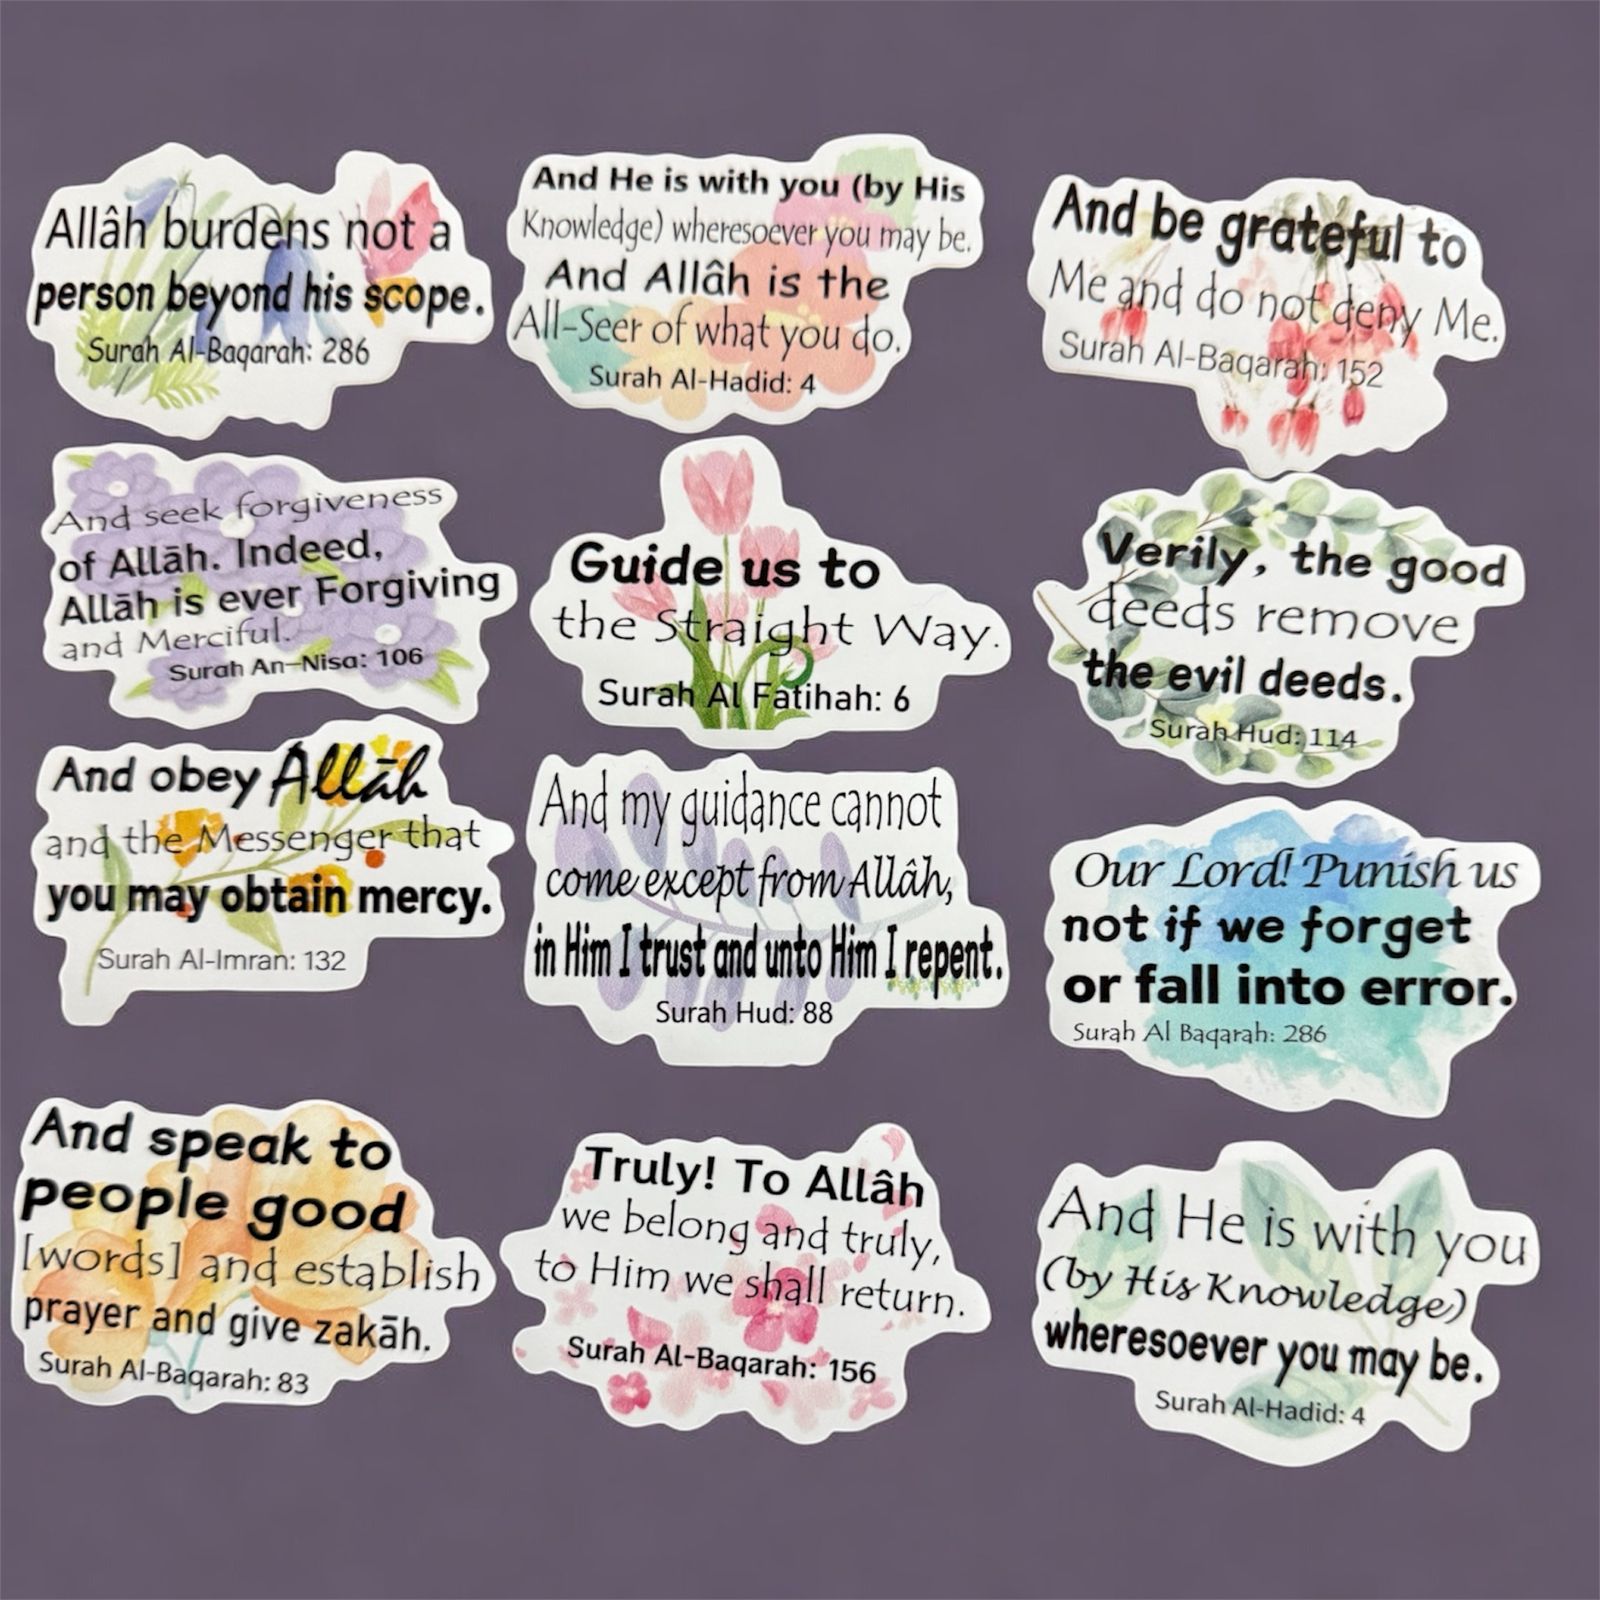 Allâh burdens not a
person beyond his scope.
Surah Al-Baqarah: 286
And He is with you (by His
Knowledge) wheresoever you may be.
And Allâh is the
All-Seer of what you do.
Surah Al-Hadid: 4
And be grateful to
Me and do not deny Me.
Surah Al-Baqarah: 152
And seek forgiveness
of Allāh. Indeed,
Allāh is ever Forgiving
and Merciful.
Surah An-Nisa: 106
Guide us to
the Straight Way.
Surah Al Fatihah: 6
Verily, the good
deeds remove
the evil deeds.
Surah Hud: 114
And obey Allāh
and the Messenger that
you may obtain mercy.
Surah Al-Imran: 132
And my guidance cannot
come except from Allâh,
in Him I trust and unto Him I repent.
Surah Hud: 88
Our Lord! Punish us
not if we forget
or fall into error.
Surah Al Baqarah: 286
And speak to
people good
[words] and establish
prayer and give zakāh.
Surah Al-Baqarah: 83
Truly! To Allâh
we belong and truly,
to Him we shall return.
Surah Al-Baqarah: 156
And He is with you
(by His Knowledge)
wheresoever you may be.
Surah Al-Hadid: 4